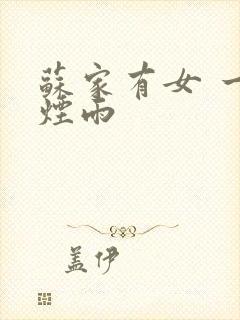 蘇家有女 一
煙雨
盖伊